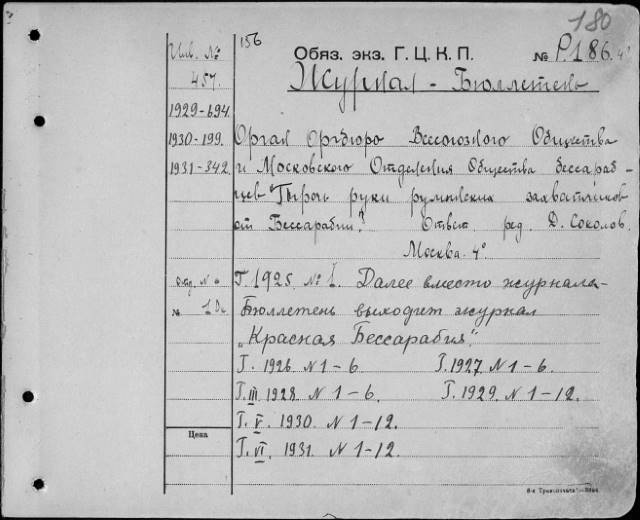 180
Инв. №
156
Обяз. экз. Г. Ц. К. П.
№ Р.186. 4°
457.
Журнал - Бюллетень
1929-694
1930-199.
Орган Оргбюро Всесоюзного Общества
1931-342
и Московского Отделения Общества бессараб-
цев "Прочь руки румынских захватчиков
от Бессарабии". Ответ. ред. Д. Соколов.
Москва. 4°
Г. 1925. № 1. Далее вместо журнала-
№
Бюллетень выходит журнал
„Красная Бессарабия".
Г. 1926. N 1-6
Г. 1927. N 1-6.
Г. III 1928. N 1-6.
Г. 1929. N 1-12.
Г. V. 1930. N 1-12.
Цена
Г. VI. 1931. N 1-12.